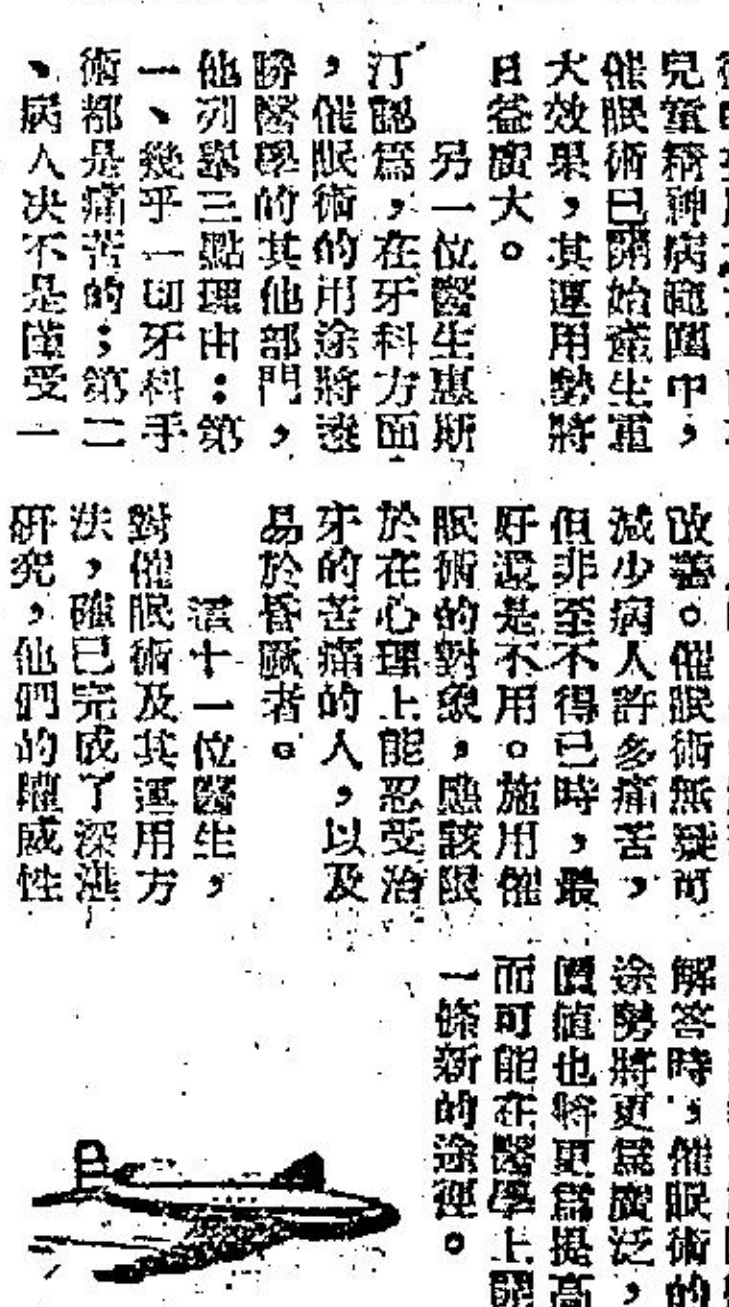 兒童精神病範圍中，
催眠術已開始產生重
大效果，其運用勢將
日益廣大。
另一位醫生惠斯
汀認爲，在牙科方面
，催眠術的用途將遠
勝醫學的其他部門，
他列舉三點理由：第
一、幾乎一切牙科手
術都是痛苦的；第二
、病人决不是僅受一
改善。催眠術無疑可
減少病人許多痛苦，
但非至不得已時，最
好還是不用。施用催
眠術的對象，應該限
於在心理上能忍受治
牙的苦痛的人，以及
易於昏厥者。
這十一位醫生，
對催眠術及其運用方
法，確已完成了深湛
研究，他們的權威性
解答時，催眠術的
途勢將更爲廣泛，
價值也將更爲提高
而可能在醫學上開
一條新的途徑。